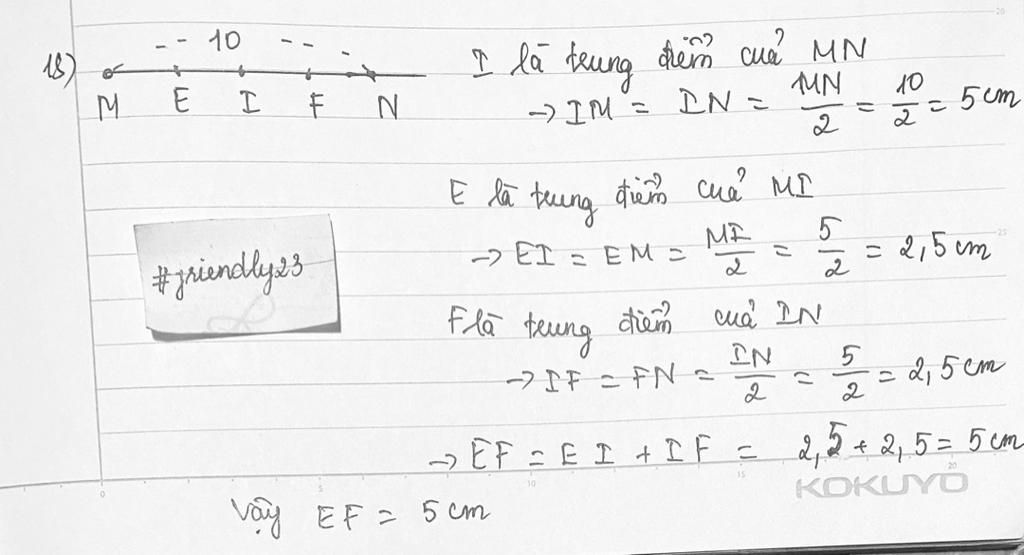 18)
-- 10 ---
M E I F N
I là trung điểm của MN
→ IM = IN = MN/2 = 10/2 = 5 cm
E là trung điểm của MI
→ EI = EM = MI/2 = 5/2 = 2,5 cm
#friendly23
F là trung điểm của IN
→ IF = FN = IN/2 = 5/2 = 2,5 cm
→ EF = EI + IF = 2,5 + 2,5 = 5 cm
KOKUYO
Vậy EF = 5 cm
0 5 10 15 20
25
20